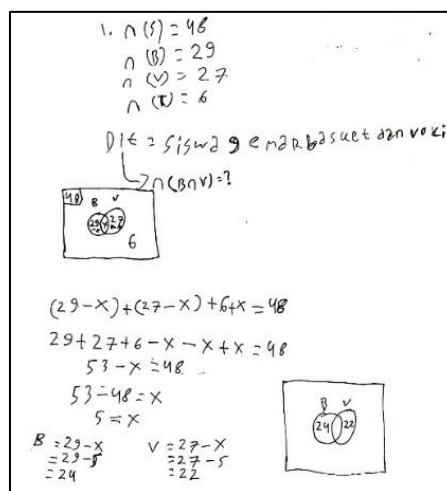 1. n(S) = 48
n(B) = 29
n(V) = 27
n(T) = 6
Dit = Siswa gemar basket dan voli
n(B∩V) = ?
48 B V
29-x x 27-x
6
(29-x)+(27-x)+6+x = 48
29+27+6-x-x+x = 48
53-x = 48
53-48 = x
5 = x
B = 29-x
= 29-5
= 24
V = 27-x
= 27-5
= 22
B V
24 22